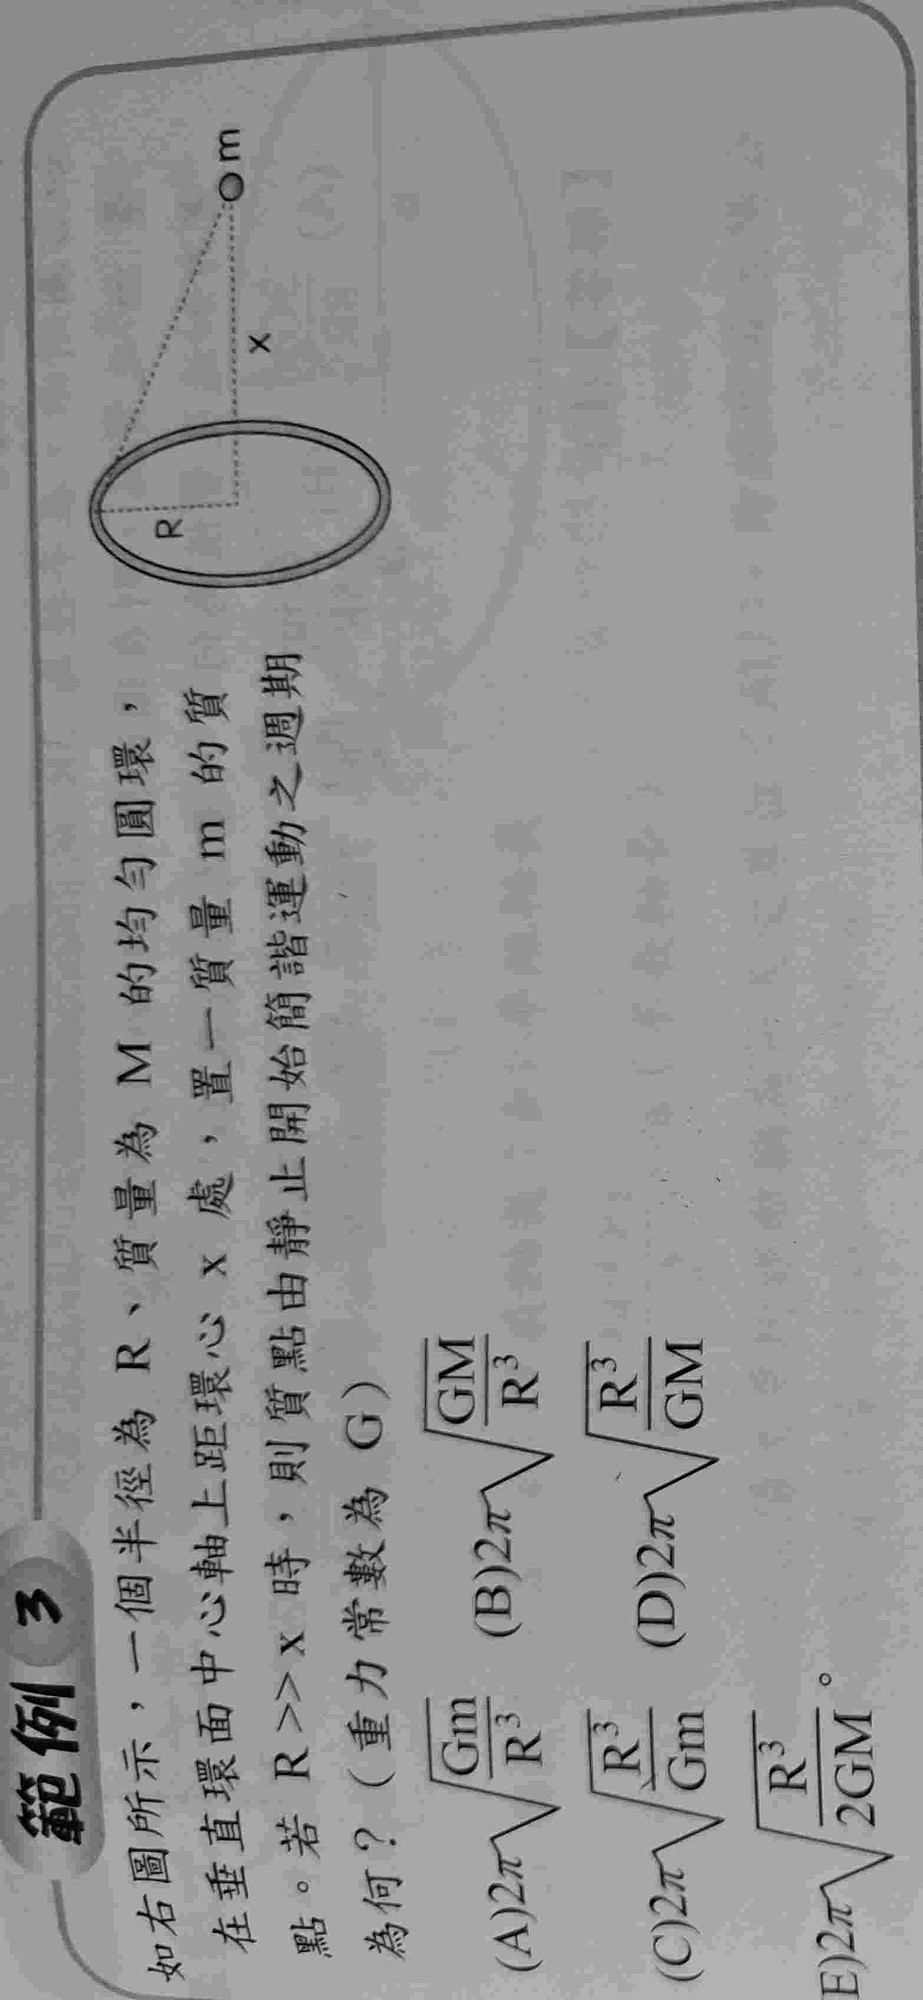 範例 3
如右圖所示，一個半徑為 R、質量為 M 的均勻圓環，
在垂直環面中心軸上距環心 x 處，置一質量 m 的質
點。若 R >> x 時，則質點由靜止開始簡諧運動之週期
為何？（重力常數為 G）
(A)2π√(Gm/R³) (B)2π√(GM/R³)
(C)2π√(R³/Gm) (D)2π√(R³/GM)
E)2π√(R³/2GM)。
R
x
m